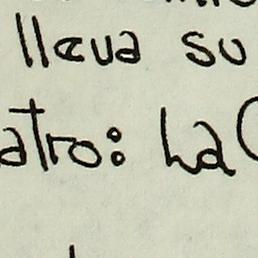 lleva su
atro: La